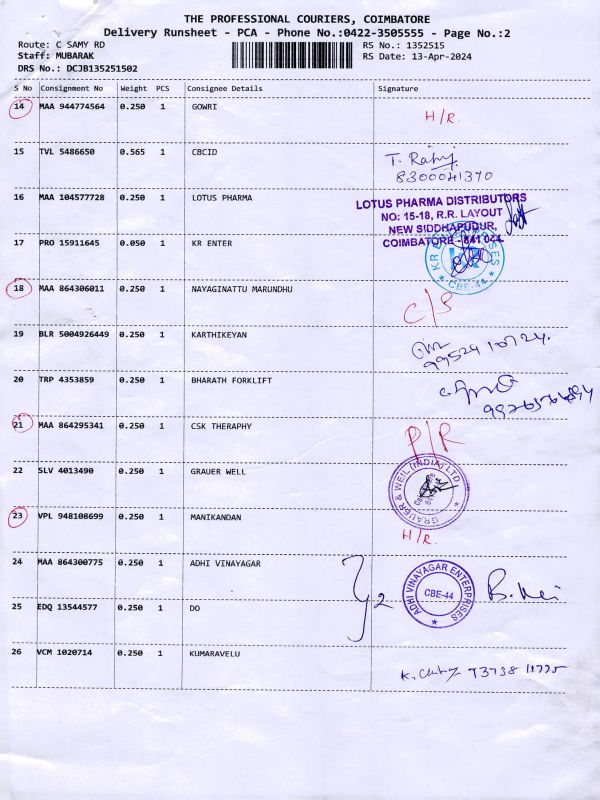 THE PROFESSIONAL COURIERS, COIMBATORE
Delivery Runsheet - PCA - Phone No.:0422-3505555 - Page No.:2
Route: C SAMY RD RS No.: 1352515
Staff: MUBARAK RS Date: 13-Apr-2024
DRS No.: DCJB135251502
S No Consignment No Weight PCS Consignee Details Signature
14 MAA 944774564 0.250 1 GOWRI H/R.
15 TVL 5486650 0.565 1 CBCID T.
8300041370
16 MAA 104577728 0.250 1 LOTUS PHARMA
LOTUS PHARMA DISTRIBUTORS
NO: 15-18, R.R. LAYOUT
NEW SIDDHAPUDUR,
COIMBATORE - 641 044.
17 PRO 15911645 0.050 1 KR ENTER
CBE-44
18 MAA 864306011 0.250 1 NAYAGINATTU MARUNDHU C/S
19 BLR 5004926449 0.250 1 KARTHIKEYAN
20 TRP 4353859 0.250 1 BHARATH FORKLIFT
21 MAA 864295341 0.250 1 CSK THERAPHY P/R
22 SLV 4013490 0.250 1 GRAUER WELL
GRAUER & WEIL (INDIA) LTD.
23 VPL 948108699 0.250 1 MANIKANDAN H/R.
24 MAA 864300775 0.250 1 ADHI VINAYAGAR
ADHI VINAYAGAR ENTERPRISES
CBE-44
25 EDQ 13544577 0.250 1 DO
26 VCM 1020714 0.250 1 KUMARAVELU